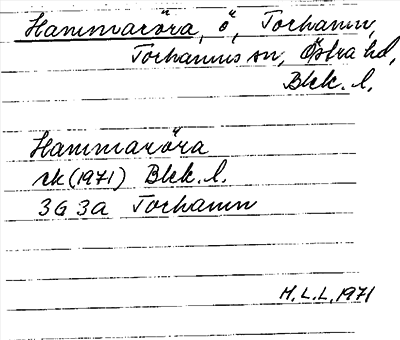 Hammaröra, ö, Torhamn,
Torhamns sn, Östra hd,
Blek. l.
Hammaröra
ek (1971) Blek. l.
3G 3a Torhamn
H.L.L. 1971